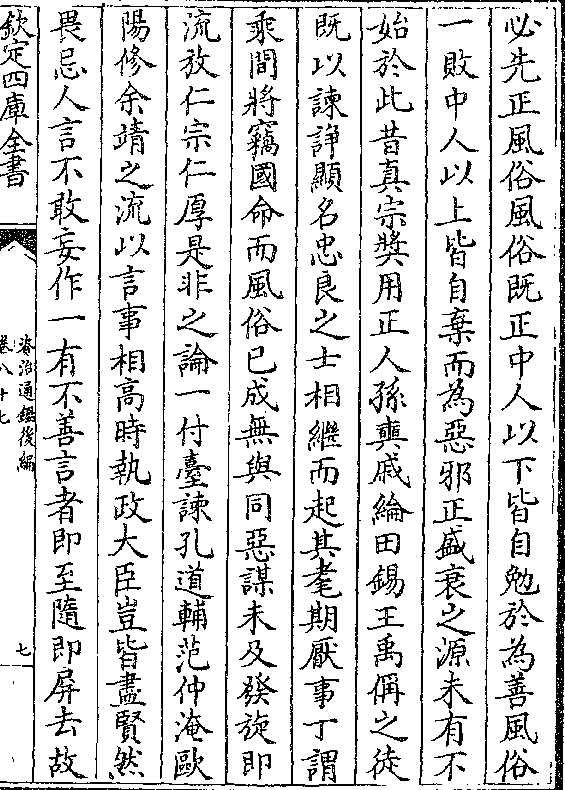 必先正風俗風俗既正中人以下皆自勉於為善風俗
一敗中人以上皆自棄而為惡邪正盛衰之源未有不
始於此昔真宗奬用正人孫奭戚綸田錫王禹偁之徒
既以諫諍顯名忠良之士相繼而起其耄期厭事丁謂
乘間將竊國命而風俗已成無與同惡謀未及發旋即
流放仁宗仁厚是非之論一付臺諫孔道輔范仲淹歐
陽修余靖之流以言事相高時執政大臣豈皆盡賢然
畏忌人言不敢妄作一有不善言者即至隨即屏去故
欽定四庫全書
資治通鑑後編
卷八十七
七